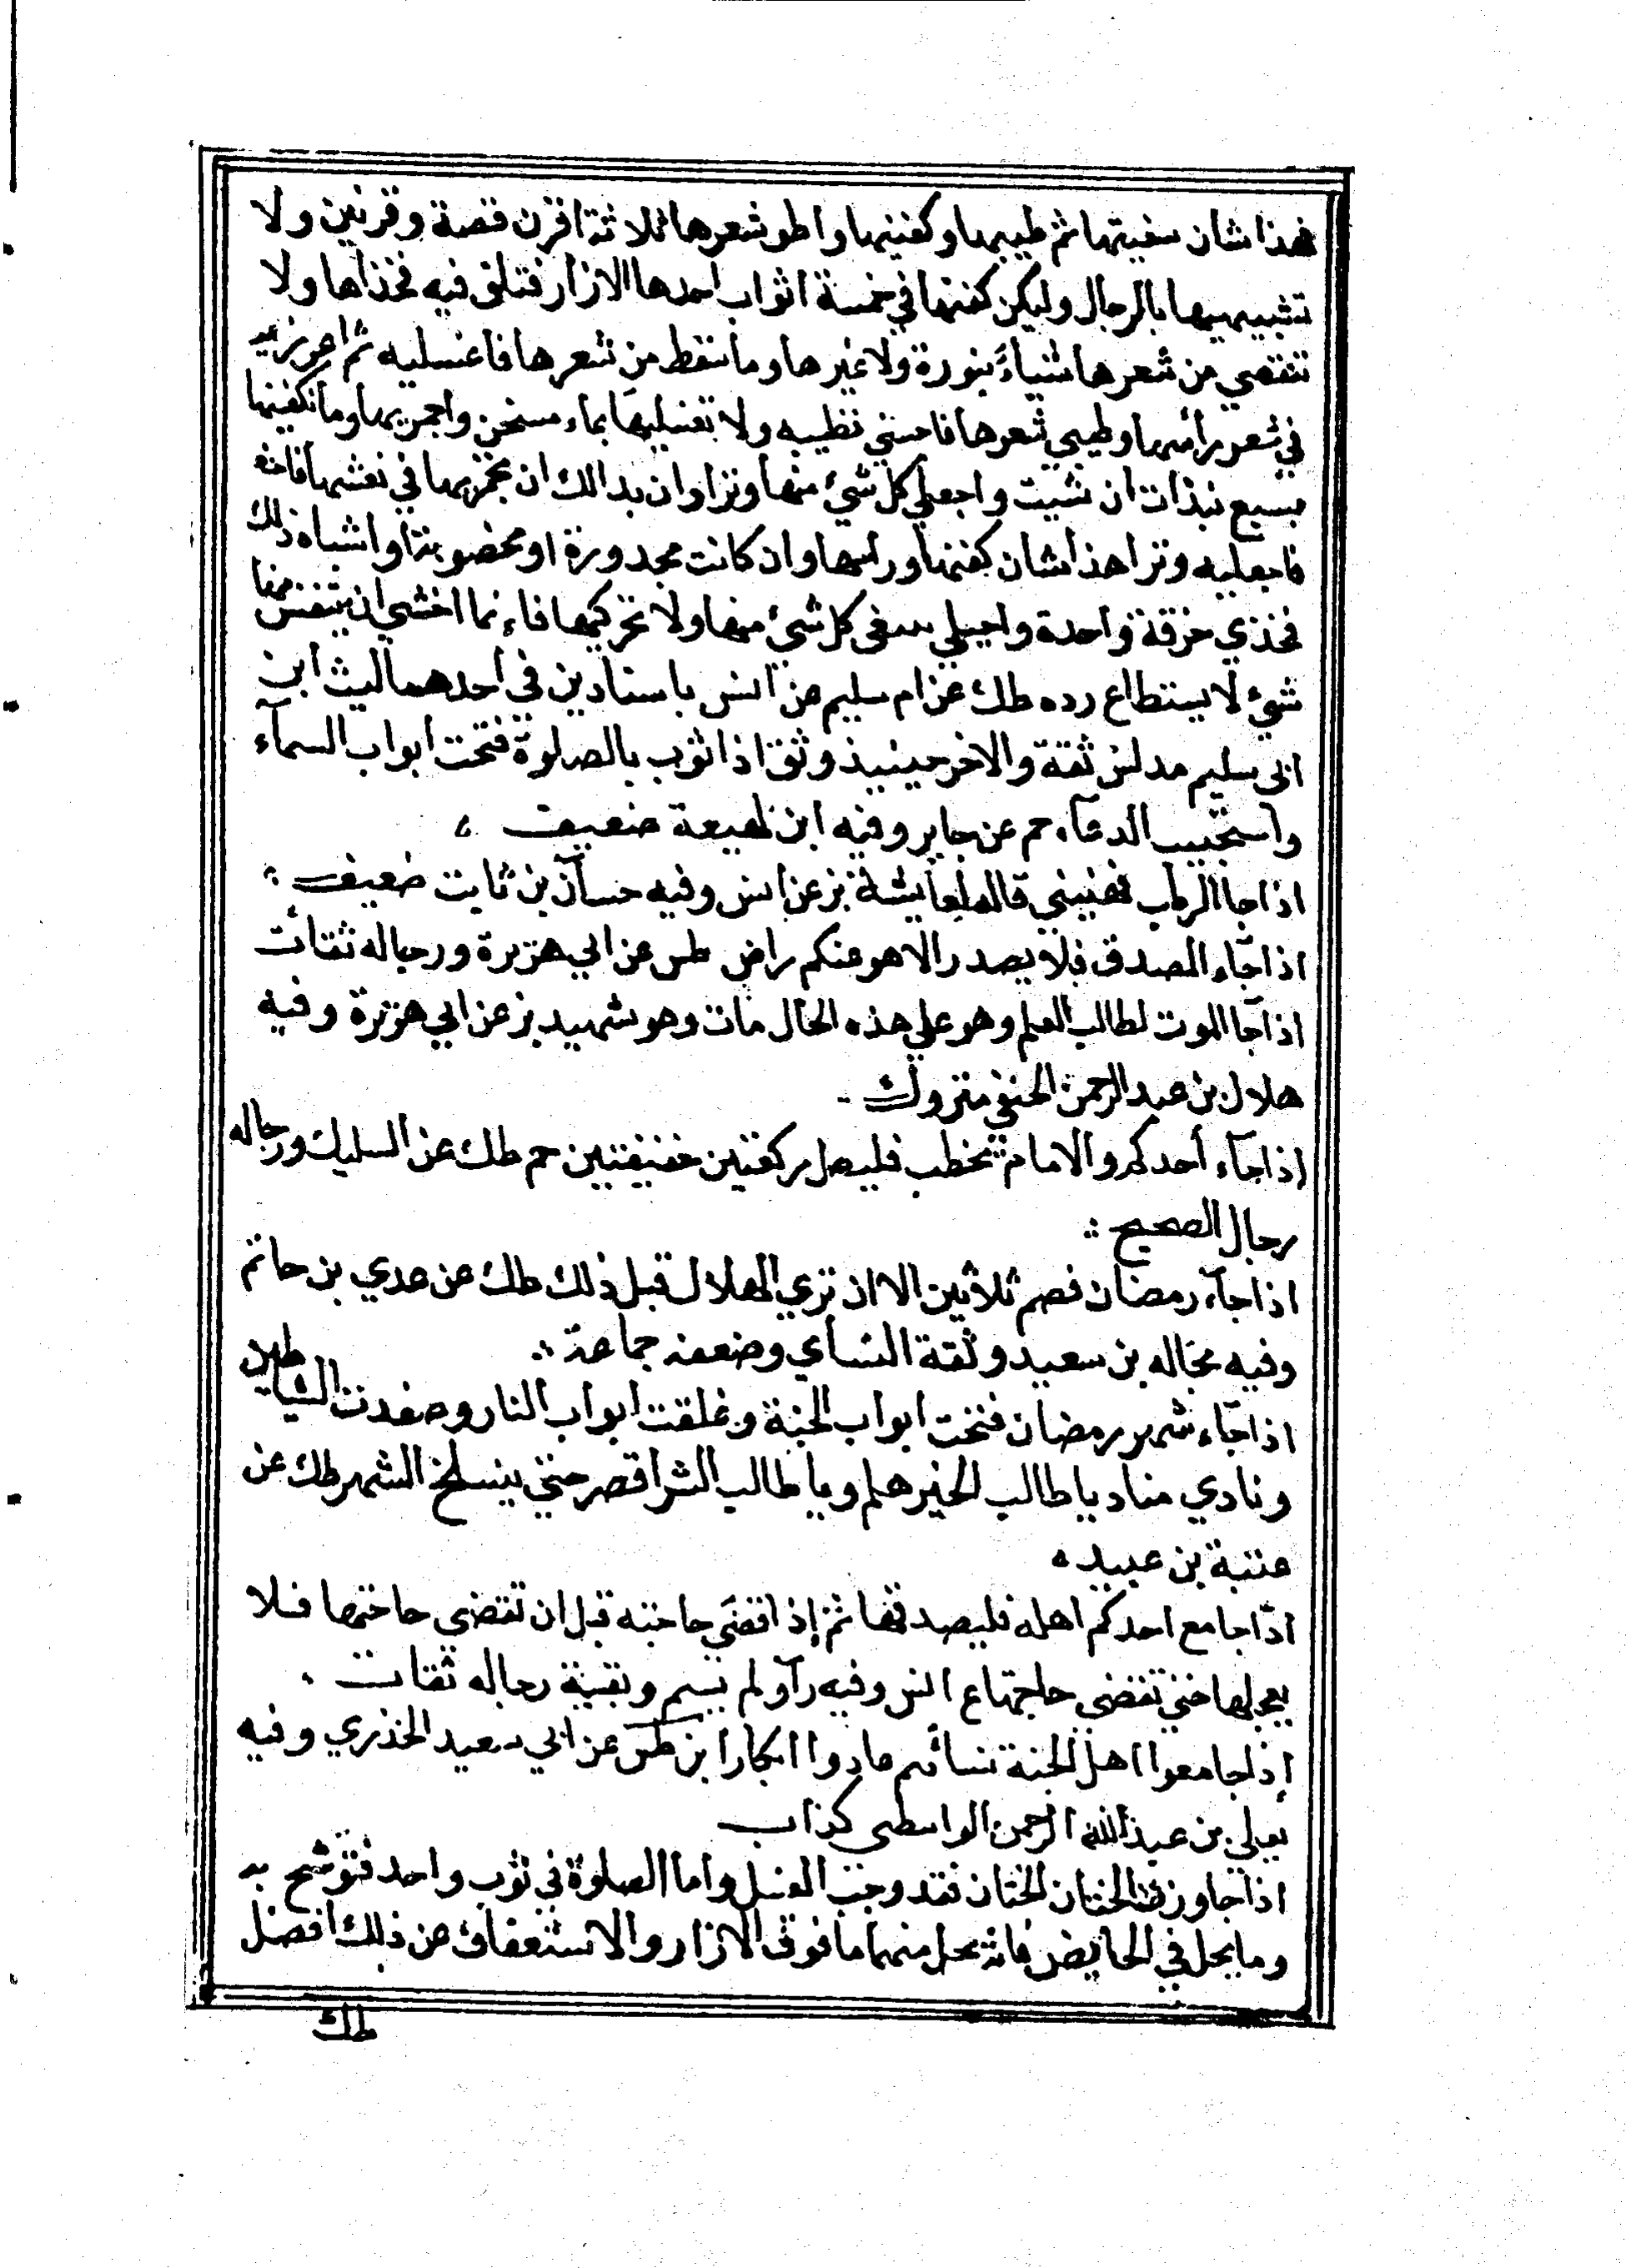 فهذا شان سفيتها ثم طيبيها وكفنيها واطو شعرها ثلاثة اقرن قصة وقرنين ولا
تشبيهيها بالرجال وليكن كفنها في خمسة اثواب احدها الازار فتلقى فيه فخذاها ولا
تنقصي من شعرها شياءً بنورة ولا غيرها وما سقط من شعرها فاغسليه ثم اغرزيه
في شعر راسها وطيبي شعرها فاحسني تطيبه ولا تغسليها بماء مسخن واجمريها وما تكفنيها
بسبع نبذات ان شيت واجعلي كل شئ منها وترا وان بدالك ان تجمريها في نعشها
فاجعليه وترا هذا شان كفنها وراسها وان كانت مجدورة او مخضوبة او اشباه ذلك
فخذي خرقة واحدة كل شئ منها ولا تحركيها فاءنما اخشي ان يتنفس منها
شئ لا يستطاع رده طك عن ام سليم من انس باسنادين في احدهما ليث ابن
ابى سليم مدلس ثقة والاخر وثق اذا ثوب بالصلوة فتحت ابواب السمآء
واستجيب الدعآء حم عن جابر وفيه ابن لهيعة ضعيف
اذا جا الرطب فهنيني قاله لعايشة بز عن انس وفيه حسان بن ثابت ضعيف
اذا جآء المصدق فلا يصدر الا هو عنكم راض طس عن ابي هريرة ورجاله ثقات
اذا جآ الموت لطالب العلم وهو على هذه الحال مات وهو شهيد بز عن ابي هريرة وفيه
هلال بن عبد الرحمن الحنفي متروك
اذا جآء أحدكم والامام يخطب فليصل ركعتين خفيفتين حم طك عن السليك ورجاله
رجال الصحيح
اذا جآء رمضان فصم ثلاثين الا ان تري الهلال قبل ذلك طك عن عدي بن حاتم
وفيه مجاله بن سعيد وثقة النساي وضعفه جماعة
اذا جآء شهر رمضان فتحت ابواب الجنة وغلقت ابواب النار وصفدت الشياطين
ونادي مناد يا طالب الخير هلم ويا طالب الشر اقصر حتي ينسلخ الشهر طك عن
عتبة بن عبيد
اذا جامع احدكم اهله فليصدقها ثم إذا قضى حاجته قبل ان تقضى حاجتها فلا
يعجلها حتي تقضى حاجتها ع انس وفيه رآو لم يسم وبقية رجاله ثقات
إذا جامعوا اهل الجنة نسائهم عادوا ابكارا بز طس عن ابي سعيد الخذري وفيه
يعلى بن عبد الله الرحمن الواسطى كذاب
اذا جاوز الختان الختان فقد وجب الغسل واما الصلوة في ثوب واحد فتوشح به
وما يحل في الحايض فانه يحل منها ما فوق الازار والاستعفاف عن ذلك افضل
طك